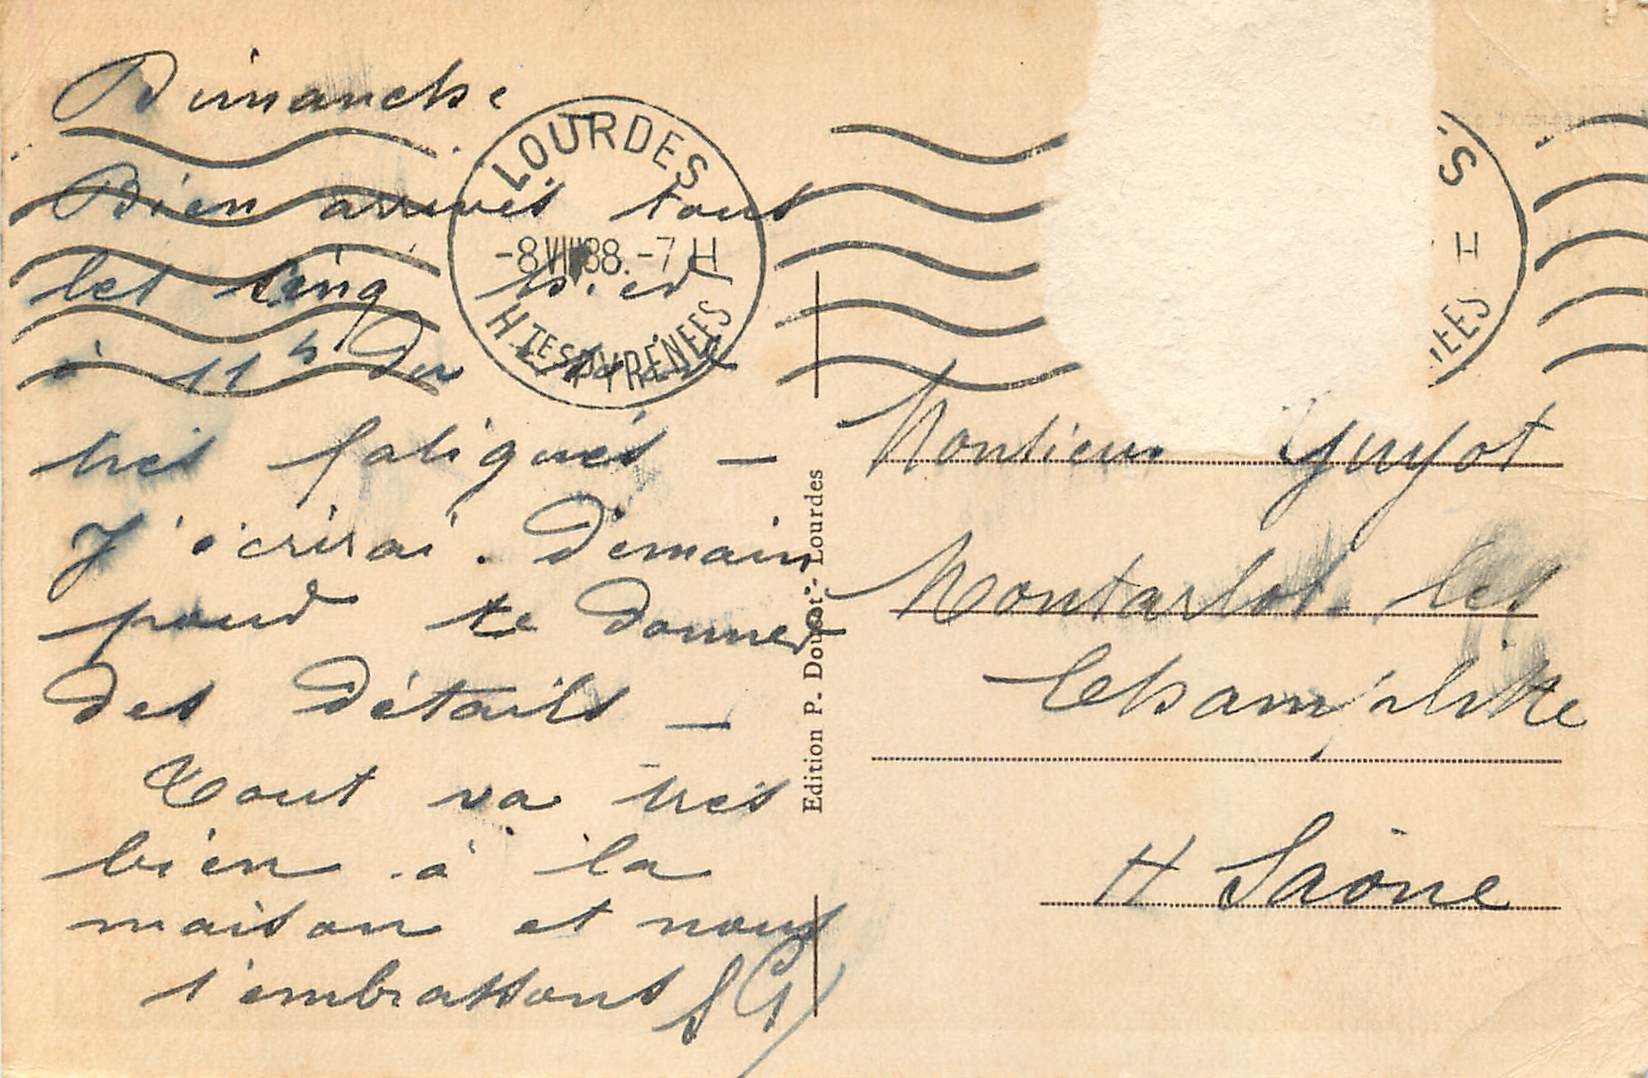 Dimanche
Bien arrivés tous
les cinq
à 11h du
très fatigués —
J'écrirai. Demain
pour te donner
des détails —
Tout va très
bien à la
maison et nous
t'embrassons SG
LOURDES
-8 VIII 38.-7 H
HTES PYRÉNÉES
Edition P. Doucet - Lourdes
S
H
ÉES
Monsieur Guyot
Montarlot-les
Champlitte
H Saône